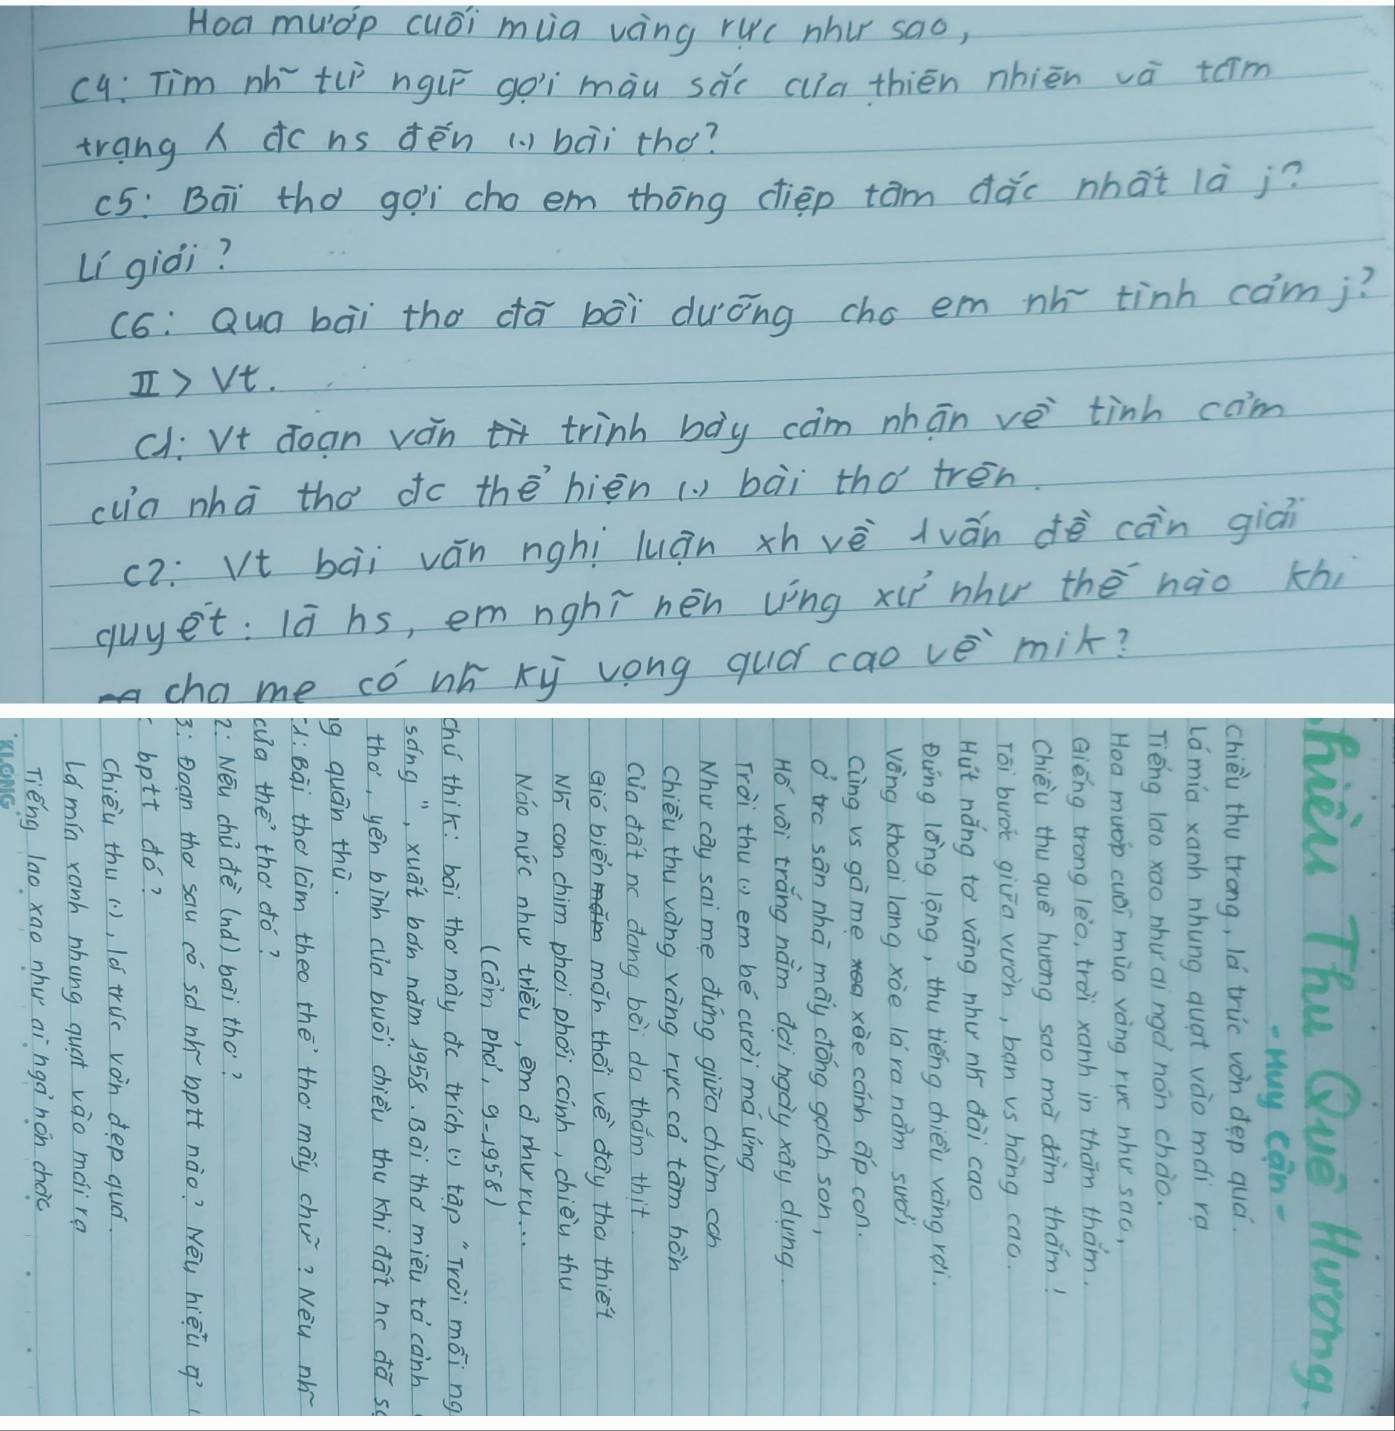 Hoa mướp cuối mùa vàng rực như sao,
C4: Tìm nh~ từ ngữ gợi màu sắc của thiên nhiên và tâm
trạng λ đc ns đến (.) bài thơ?
C5: Bài thơ gợi cho em thông điệp tâm đắc nhất là j?
Lí giải?
C6: Qua bài thơ đã bồi dưỡng cho em nh~ tình cảm j?
II > Vt.
C1: Vt đoạn văn trình bày cảm nhận về tình cảm
của nhà thơ đc thể hiện (.) bài thơ trên.
C2: Vt bài văn nghị luận xh về 1 vấn đề cần giải
quyết: là hs, em nghĩ nên ứng xử như thế nào khi
cha mẹ có nh~ kỳ vọng quá cao về mik?
hiều Thu Quê Hương.
- Huy Cận -
Chiều thu trong, lá trúc vờn đẹp quá.
Lá mía xanh nhung quạt vào mái rạ
Tiếng lao xao như ai ngả nón chào.
Hoa mướp cuối mùa vàng rực như sao,
Giếng trong lẻo, trời xanh in thăm thẳm.
Chiều thu quê hương sao mà đằm thắm!
Tôi bước giữa vườn, bạn vs hàng cao.
Hút nắng tơ vàng như nh~ đài cao
Đứng lồng lộng, thu tiếng chiều vàng rợi.
Vồng khoai lang xòe lá ra nằm sưởi
Cùng vs gà mẹ xòe cánh ấp con.
Ở trc sân nhà mấy đống gạch son,
Hố vôi trắng nằm đợi ngày xây dựng.
Trời thu (.) em bé cười má ửng
Như cây sai mẹ đứng giữa chùm con
Chiều thu vàng vàng rực cả tâm hồn
Của đất nc đang bồi da thắm thịt.
Gió biển mặn thổi về đây tha thiết
Nh~ con chim phơi phới cánh, chiều thu
Náo nức như triều, êm ả như ru...
(Cẩm phả, 9-1958)
chú thik: bài thơ này đc trích (.) tập "Trời mỗi ng
sáng", xuất bản năm 1958. Bài thơ miêu tả cảnh
thơ, yên bình của buổi chiều thu khi đất nc đã s
g quân thù.
1: Bài thơ làm theo thể thơ mấy chữ? Nêu nh~
của thể thơ đó?
2: Nêu chủ đề (nd) bài thơ?
3: Đoạn thơ sau có sd nh~ bptt nào? Nêu hiệu q'
bptt đó?
Chiều thu (.), lá trúc vờn đẹp quá.
Lá mía xanh nhung quạt vào mái rạ
Tiếng lao xao như ai ngả nón chào
KLONG